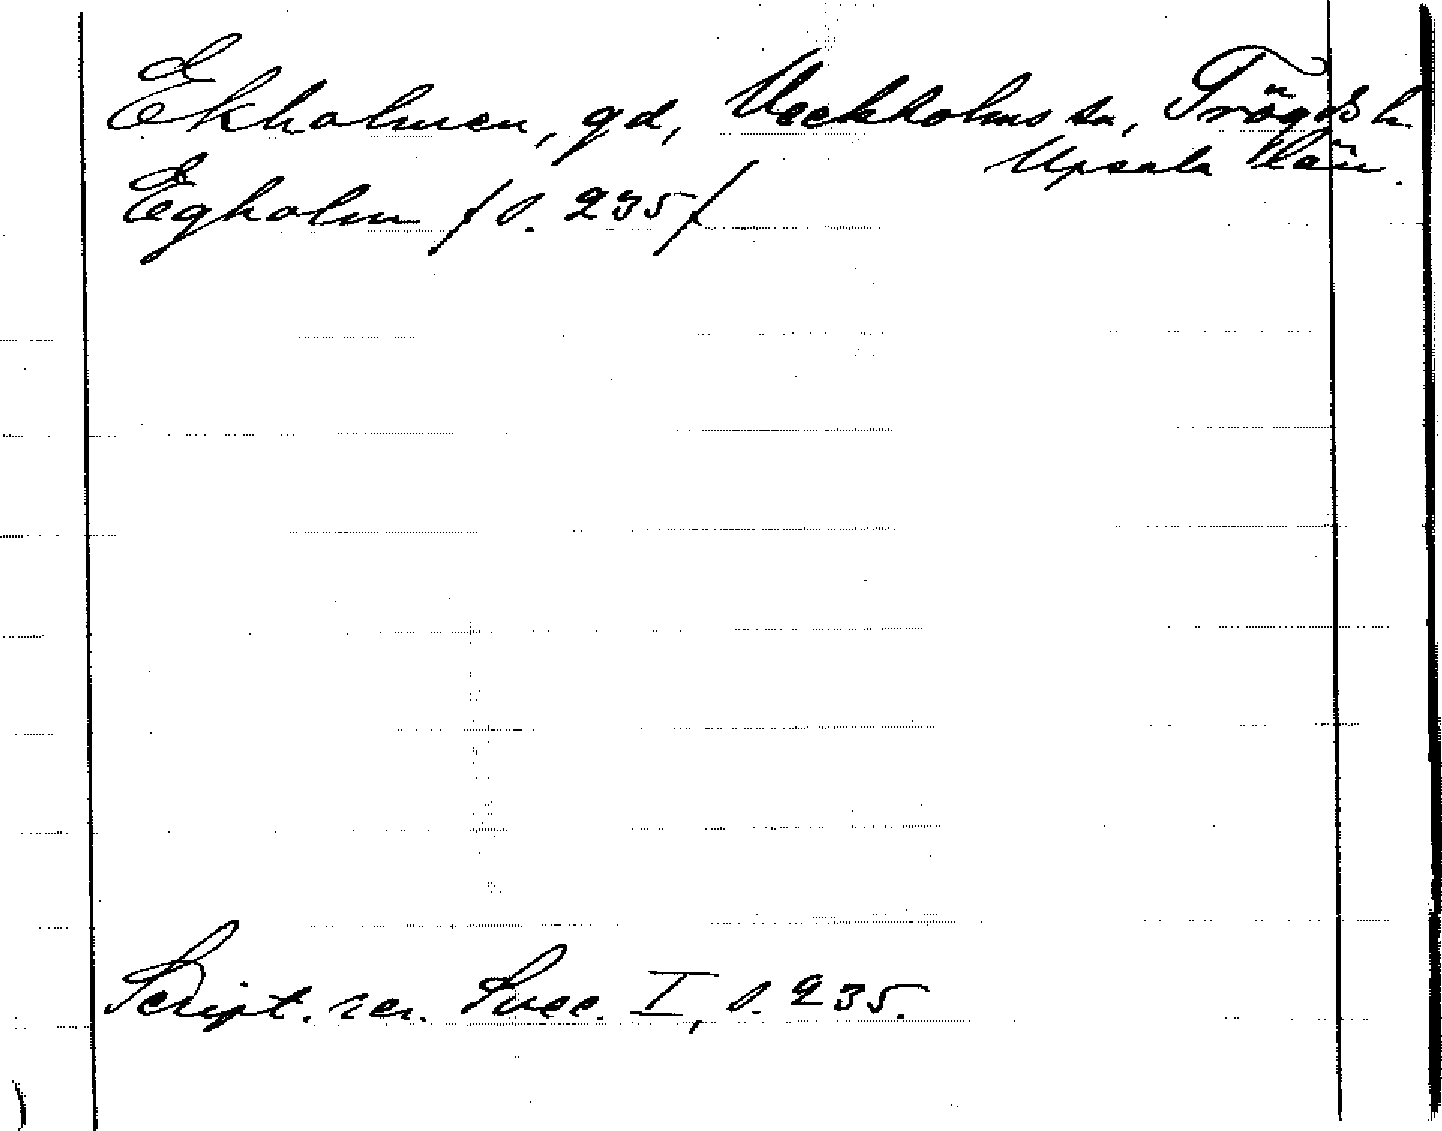 Ekholmen, gd, Veckholms sn, Trögds h.
Upsala län.
Egholm / s. 235 /
Script. rer. Svec. I, s. 235.